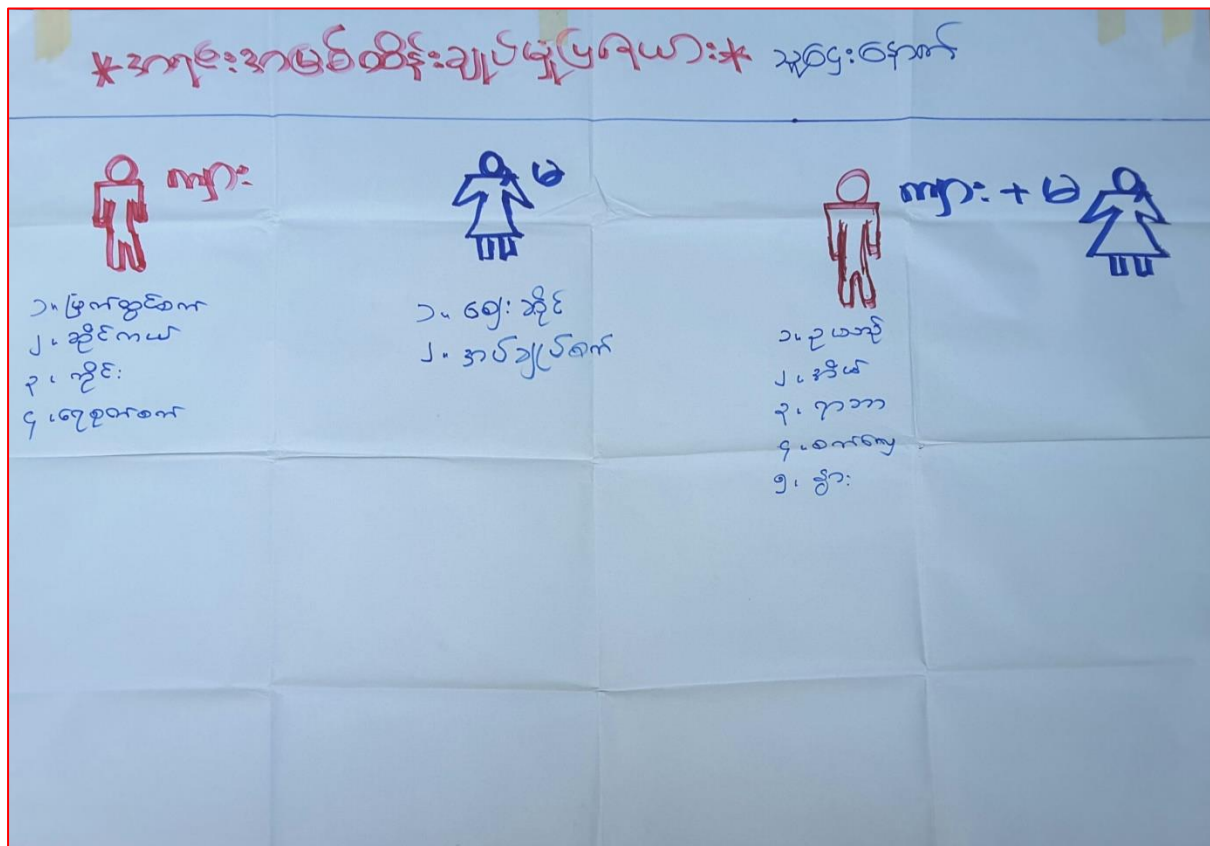 *အရင်းအမြစ်ထိန်းချုပ်မှုပြဇယား* သူဌေးနောက်
ကျား
မ
ကျား + မ
၁။ မြက်ထွင်စက်
၂။ ဆိုင်ကယ်
၃။ ကိုင်း
၄။ ရေစုတ်စက်
၁။ ဈေးဆိုင်
၂။ အပ်ချုပ်စက်
၁။ ဥယာဉ်
၂။ အိမ်
၃။ ရာဘာ
၄။ စက်လှေ
၅။ နွား